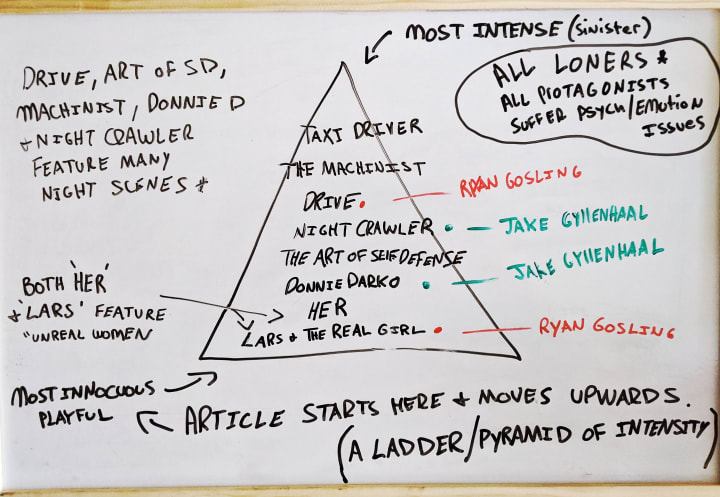 MOST INTENSE (sinister)
DRIVE, ART OF SD,
MACHINIST, DONNIE D
+ NIGHT CRAWLER
FEATURE MANY
NIGHT SCENES *
ALL LONERS *
ALL PROTAGONISTS
SUFFER PSYCH/EMOTION
ISSUES
TAXI DRIVER
THE MACHINIST
DRIVE. — RYAN GOSLING
NIGHT CRAWLER • — JAKE GYLLENHAAL
THE ART OF SELF DEFENSE
DONNIE DARKO • JAKE GYLLENHAAL
HER
LARS & THE REAL GIRL • — RYAN GOSLING
BOTH 'HER'
+ 'LARS' FEATURE
"UNREAL WOMEN
MOST INNOCUOUS
PLAYFUL
ARTICLE STARTS HERE + MOVES UPWARDS.
(A LADDER/PYRAMID OF INTENSITY)